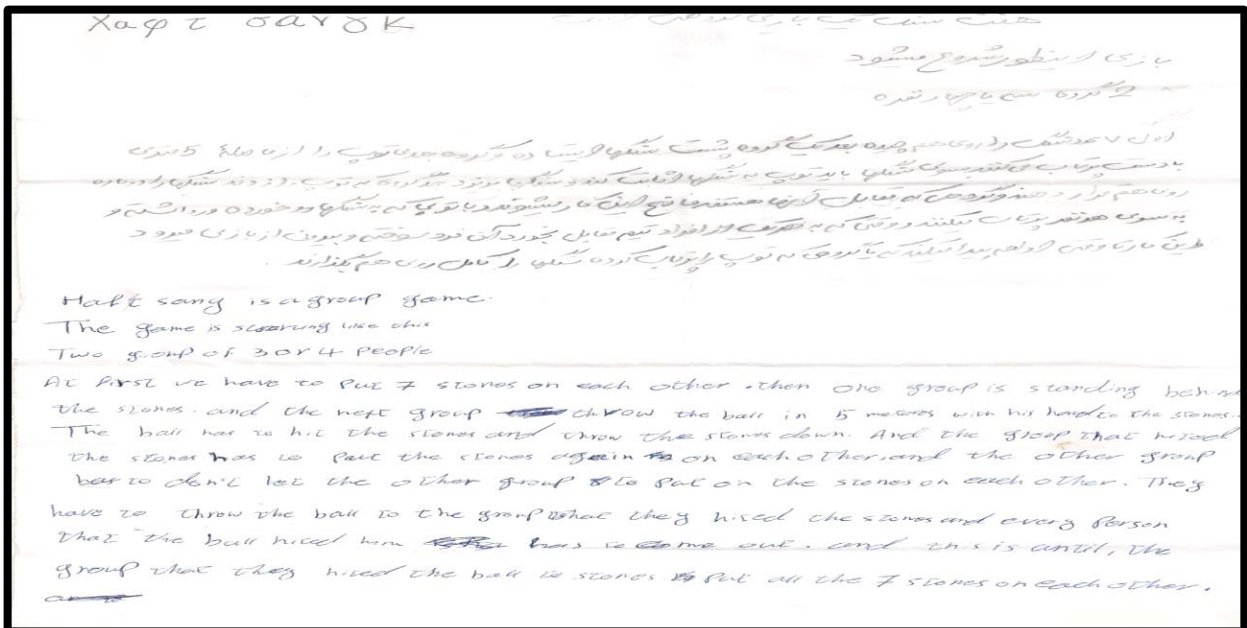 Χαφτ σανγκ
هفت سنگ یک بازی گروهی است
بازی اینطور شروع میشود
2 گروه سه یا چهار نفره
اول ۷ عدد سنگ را روی هم چیده بعد یک گروه پشت سنگها ایستاده و گروه بعدی توپ را از فاصلهٔ 5 متری
با دست پرتاب می‌کنند بسوی سنگها باید توپ به سنگها اثابت کند و سنگها بریزد گروه که توپ زدند سنگها را دوباره
روی هم قرار دهند و گروهی که مقابل آنها هستند مانع این کار میشوند با توپی که به سنگها برخورده برداشته و
به سوی هر نفر پرتاب میکنند و وقتی که به هر یک از افراد تیم مقابل بخورد آن فرد سوخته و بیرون از بازی میرود
این کار تا وقتی ادامه پیدا میکند که یا گروهی که توپ را پرتاب کرده سنگها را کامل روی هم بگذارند.
Haft sang is a group game.
The game is starting like this
Two group of 3 or 4 people
At first we have to put 7 stones on each other. then one group is standing behind
the stones. and the next group throw the ball in 5 meteres with his hand to the stones.
The ball has to hit the stones and throw the stones down. And the group that hited
the stones has to put the stones again on each other. and the other group
has to don't let the other group to put on the stones on each other. They
have to throw the ball to the group that they hited the stones and every person
that the ball hited him has to come out. and this is until, the
group that they hited the ball to stones put all the 7 stones on each other.